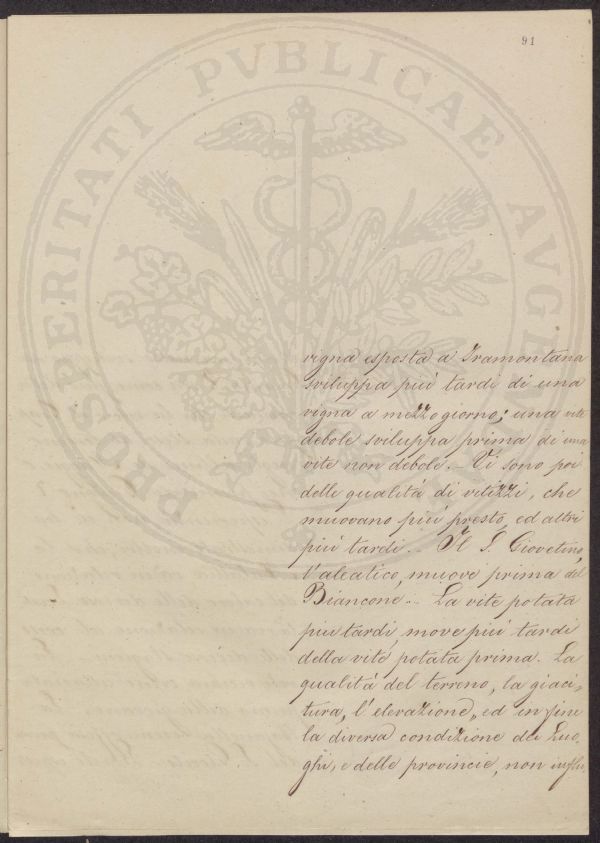 91
PROSPERITATI PVBLICAE AVGENDAE
vigna esposta a Tramontana
sviluppa piú tardi di una
vigna a mezzogiorno; una vite
debole sviluppa prima di una
vite non debole. – Vi sono poi
delle qualitá di vitizzi, che
muovano piú presto, ed altri
piú tardi. – Il S. Giovetino,
l'aleatico, muove prima del
Biancone. – La vite potata
piu tardi, move piú tardi
della vite potata prima. La
qualitá del terreno, la giaci-
tura, l'elevazione, ed in fine
la diversa condizione dei Luo-
ghi, e delle provincie, non influ-